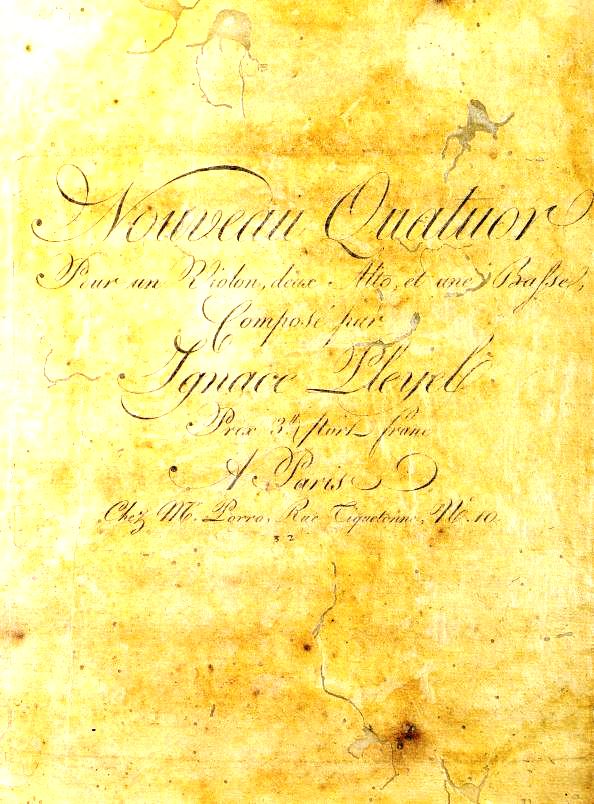 Nouveau Quatuor
Pour un Violon, deux Alto, et une Basse,
Composé par
Ignace Pleyel
Prix 3ᵗᵗ port franc
A Paris
Chez Mʳ. Porro, Rue Tiquetonne, Nº. 10.
32